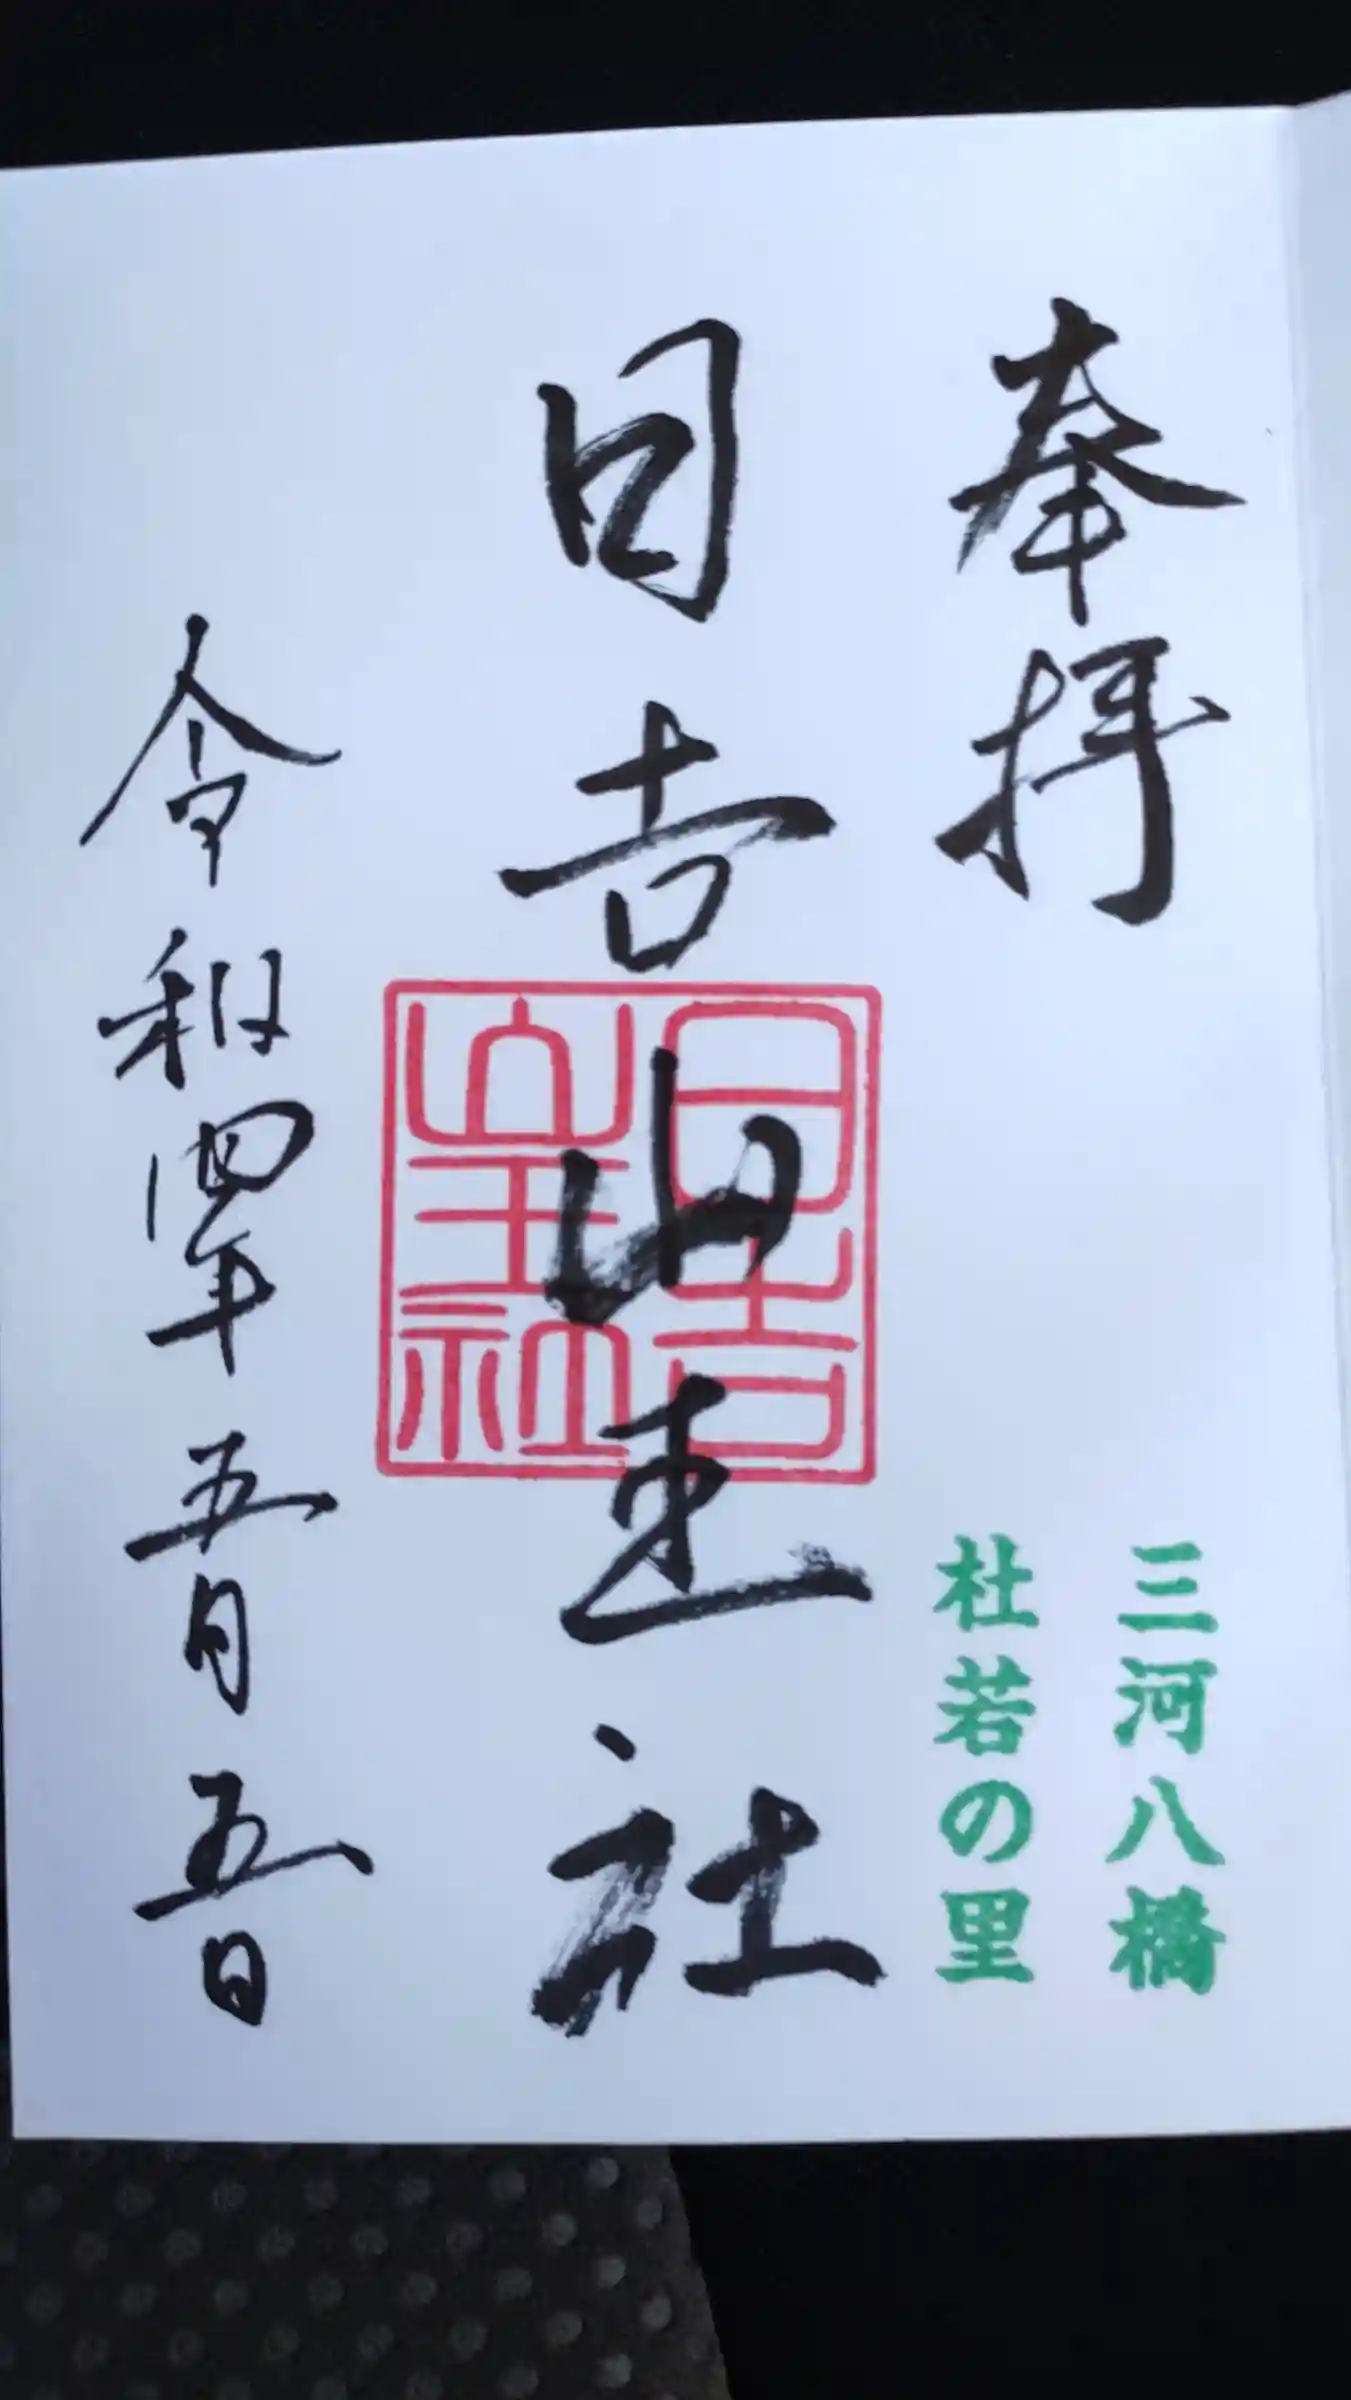 奉拝
三河八橋
杜若の里
日吉山王社
日吉
山王社
令和四年五月五日